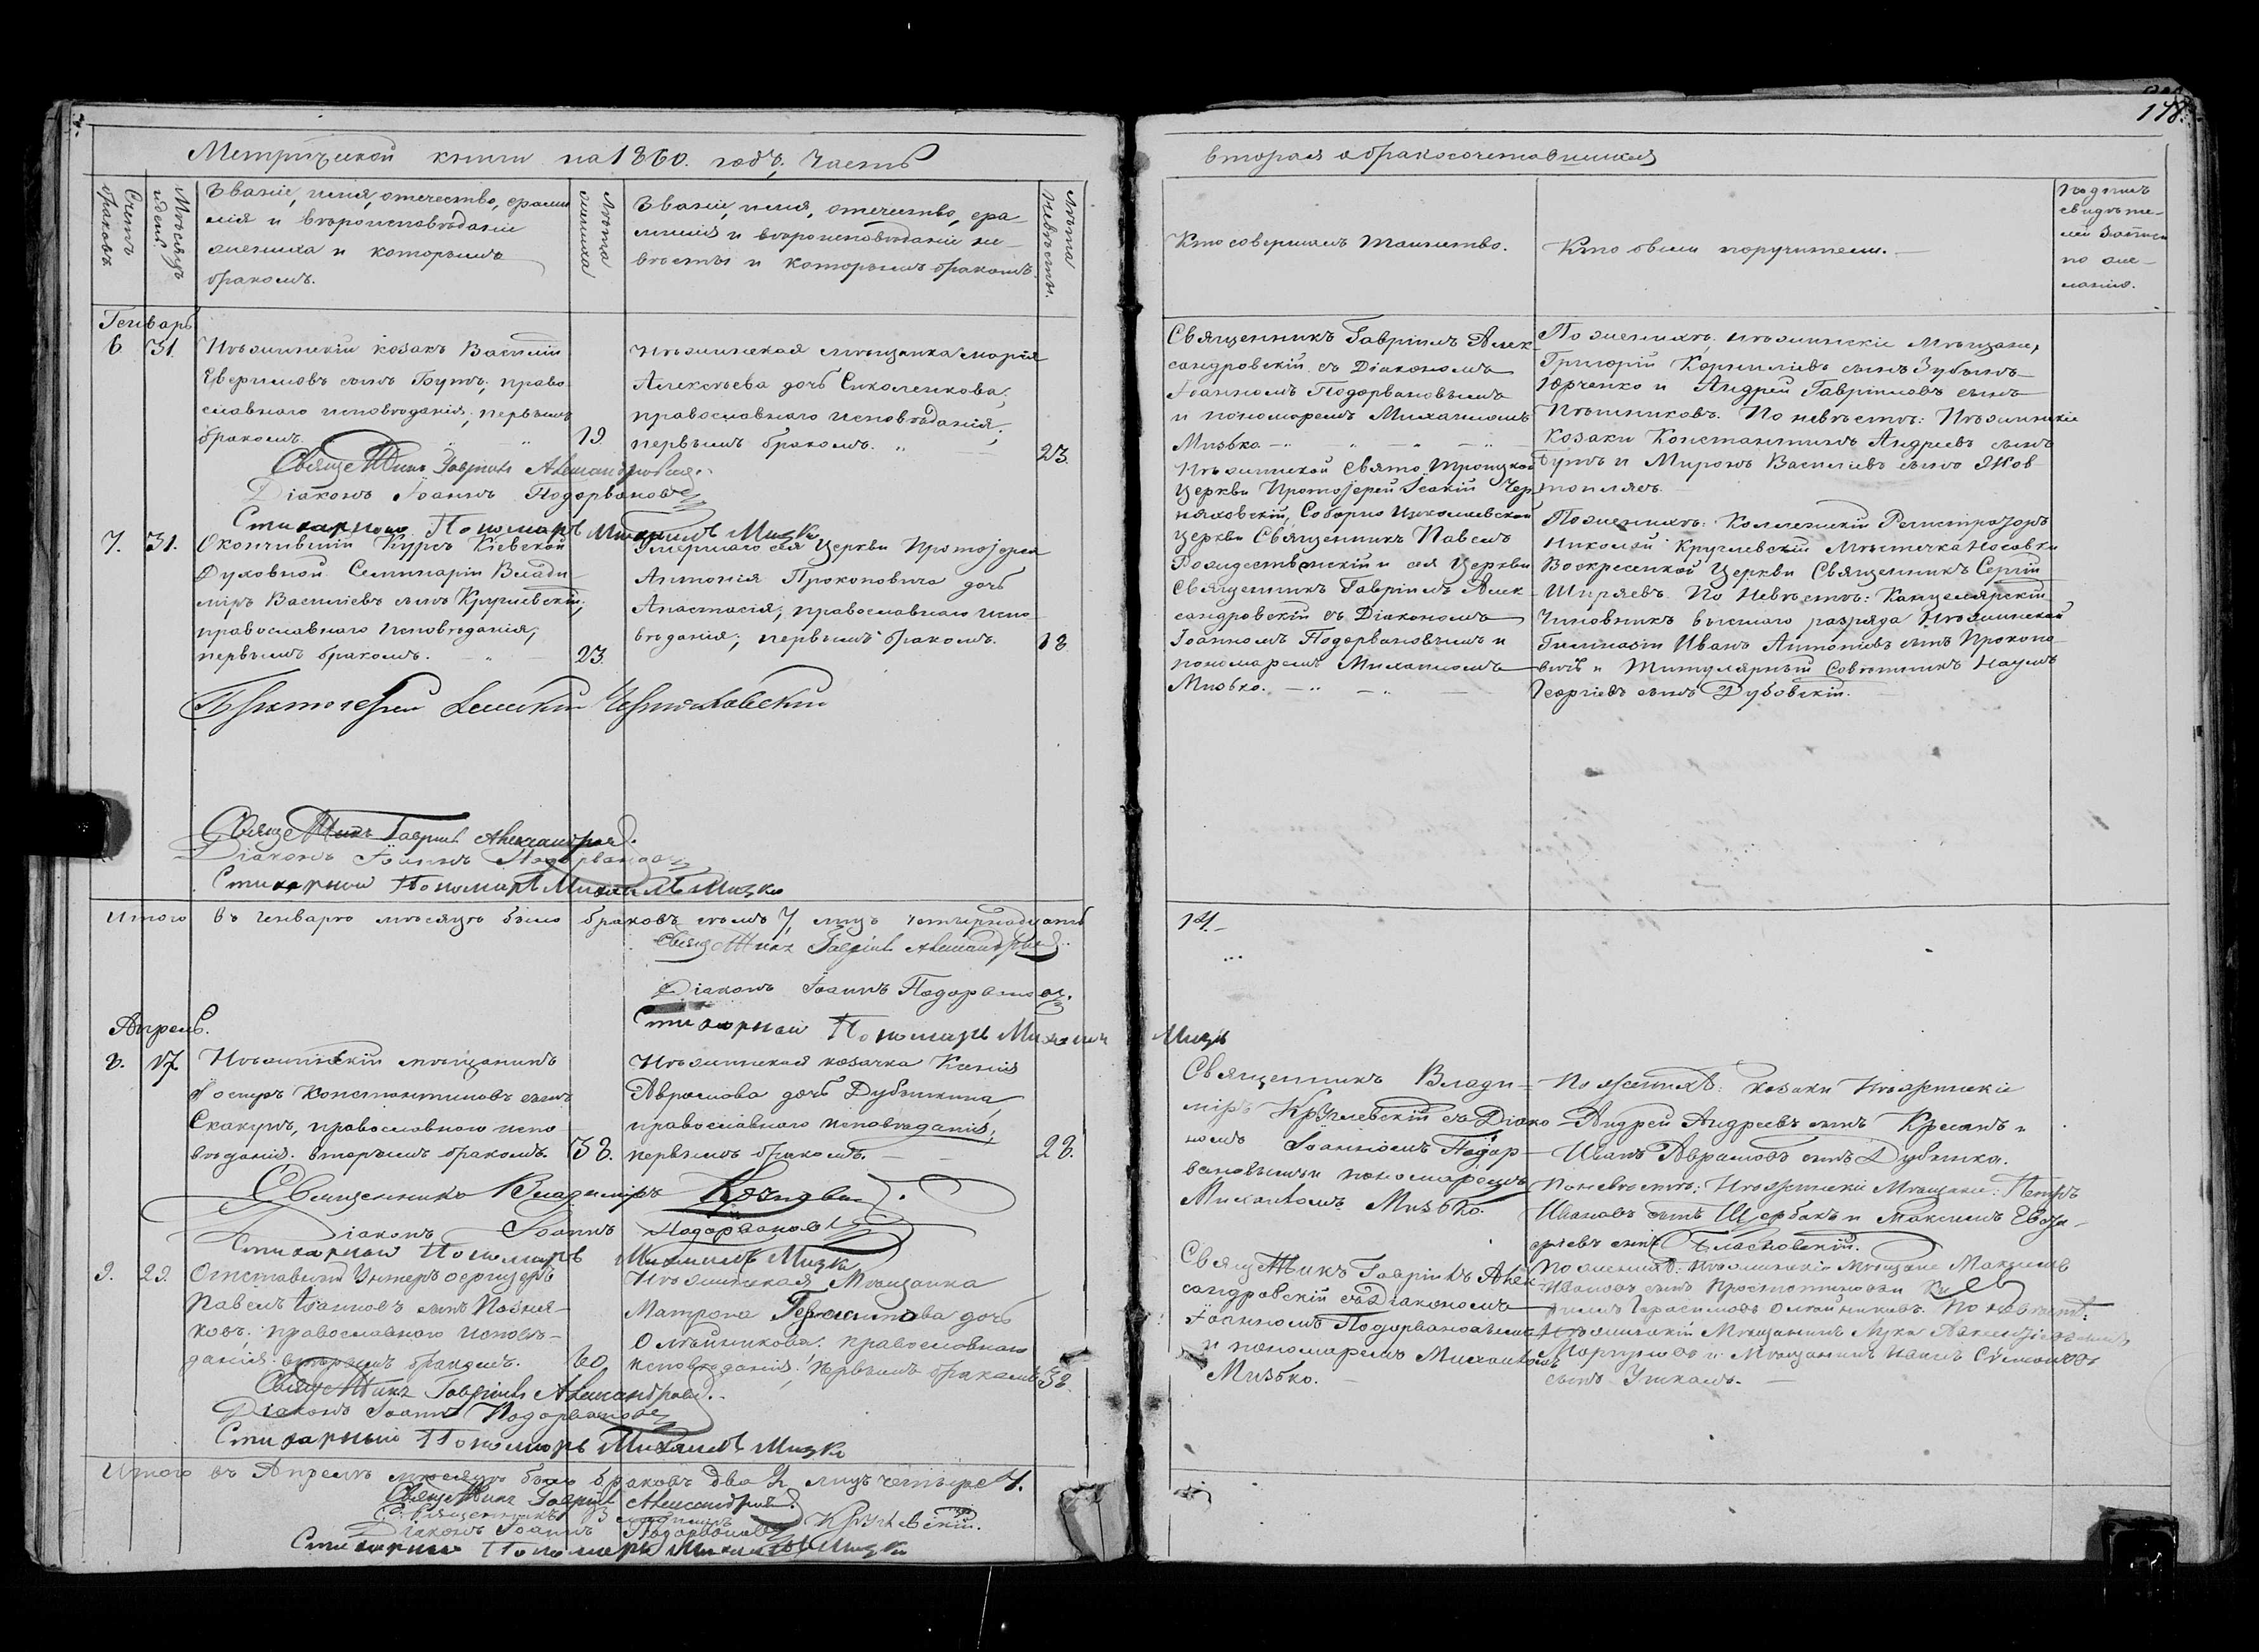 Метрической книги на 1860. годъ, Часть
вторая о бракосочетавшихся
178.
Счетъ браковъ
Мѣсяцъ и день
Званіе, имя, отечество, фами
лія и вѣроисповѣданіе
жениха и которымъ
бракомъ.
Лѣта жениха
Званіе, имя, отечество, фа-
милія и вѣроисповѣданіе не-
вѣсты и которымъ бракомъ
Лѣта невѣсты.
Кто совершалъ таинство.
Кто были поручители.
Подписъ
свидѣте-
лей записи
по же-
ланію.
Генварь
6. 31.
Нѣжинскій козакъ Василій
сынъ Бутъ; право
славнаго исповѣданія; первымъ
бракомъ. 19
Нѣжинская мѣщанка Марія
Алексѣева дочь Сиколенкова;
православнаго исповѣданія;
первымъ бракомъ. 23.
Священникъ Гавріилъ Алек
сандровскій съ Діакономъ
Іоанномъ Подорвановымъ
и пономаремъ Михаиломъ
Мизько
По женихѣ: нѣжинскіе мѣщане,
Григорій Корниліевъ сынъ
Юрченко и Андрей Гавріиловъ сынъ
По невѣстѣ: Нѣжинскіе
козаки Константинъ Андреевъ сынъ
Бутъ и Миронъ Василіевъ сынъ Жов
топлясъ
Священникъ Гавріилъ Александровскій.
Діаконъ Іоаннъ Подорвановъ
Стихарный Пономарь Михаилъ Мизко
7. 31.
Окончившій Курсъ Кіевской
Духовной Семинаріи Влади
міръ Василіевъ сынъ Круглевскій;
православнаго исповѣданія;
первымъ бракомъ. 23.
Умершаго сея Церкви Протоіерея
Антонія Прокоповича дочь
Анастасія; православнаго испо
вѣданія; первымъ бракомъ. 18
Нѣжинской Свято Троицкой
Церкви Протоіерей Іоакій Чер
няховскій, Соборно Николаевской
Церкви Священникъ Павелъ
Рождественскій и сея Церкви
Священникъ Гавріилъ Алек
сандровскій съ Діакономъ
Іоанномъ Подорвановымъ и
пономаремъ Михаиломъ
Мизько.
По женихѣ: Коллежскій Регистраторъ
Николай Круглевскій Мѣстечка Носовки
Воскресенской Церкви Священникъ Сергій
Ширяевъ. По Невѣстѣ: Канцелярскій
Чиновникъ высшаго разряда Нѣжинской
Гимназіи Иванъ Антоніевъ сынъ Прокопо
вичъ и Титулярный Совѣтникъ Наумъ
Георгіевъ сынъ Дубовскій.
Протоіерей Черняховскій
Священникъ Гавріилъ Александровскій.
Діаконъ Іоаннъ Подорвановъ
Стихарный Пономарь Михаилъ Мизко
Итого въ Генварѣ мѣсяцѣ было браковъ семь 7, лицъ четырнадцать
14.
Священникъ Гавріилъ Александровскій
Діаконъ Іоаннъ Подорвановъ.
Стихарный Пономарь Михаилъ Мизко
Апрель.
8. 17
Нѣжинскій мѣщанинъ
Константиновъ сынъ
Скакунъ, православнаго испо
вѣданія. вторымъ бракомъ. 38.
Нѣжинская козачка Ксенія
Аврамова дочь Дубинкина,
православнаго исповѣданія;
первымъ бракомъ. 28.
Священникъ Влади-
міръ Круглевскій съ Діако
номъ Іоанномъ Подор-
вановымъ и пономаремъ
Михаиломъ Мизько.
По женихѣ: козаки Нѣжинскіе
Андрей Андреевъ сынъ и
Иванъ Аврамовъ сынъ Дубинка.
По невѣстѣ; Нѣжинскіе Мѣщане: Петръ
Ивановъ сынъ Щербакъ и Максимъ
сынъ
Священникъ Владиміръ Круглевскій.
Діаконъ Іоаннъ Подорвановъ
Стихарный Пономарь Михаилъ Мизко
9. 29.
Отставный Унтеръ офицеръ
Павелъ Іоанновъ сынъ Позня-
ковъ. православнаго исповѣ-
данія. вторымъ бракомъ. 60
Нѣжинская Мѣщанка
Матрона Герасимова дочь
Олѣйникова. православнаго
исповѣданія; первымъ бракомъ 38.
Священникъ Гавріилъ Алек
сандровскій съ Діакономъ
Іоанномъ Подорвановымъ
и пономаремъ Михаиломъ
Мизько.
По женихѣ: Нѣжинскіе мѣщане Максимъ
Ивановъ сынъ
Герасимовъ Олѣйниковъ. По невѣстѣ:
Нѣжинскій Мѣщанинъ Лука
и Мѣщанинъ
сынъ
Священникъ Гавріилъ Александровскій.
Діаконъ Іоаннъ Подорвановъ
Стихарный Пономарь Михаилъ Мизко
Итого въ Апрелѣ мѣсяцѣ было браковъ два 2. лицъ четыре 4.
Священникъ Гавріилъ Александровскій
Священникъ Владиміръ Круглевскій.
Діаконъ Іоаннъ Подорвановъ
Стихарный Пономарь Михаилъ Мизко